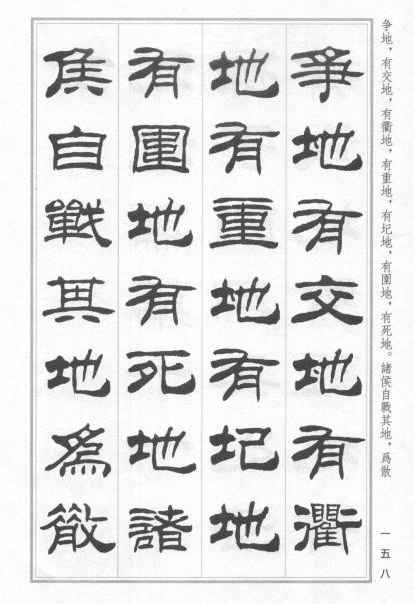 争地，有交地，有衢地，有重地，有圮地，有圍地，有死地。諸侯自戰其地，爲散
一五八
爭地有交地有衢
地有重地有圮地
有圍地有死地諸
侯自戰其地爲散